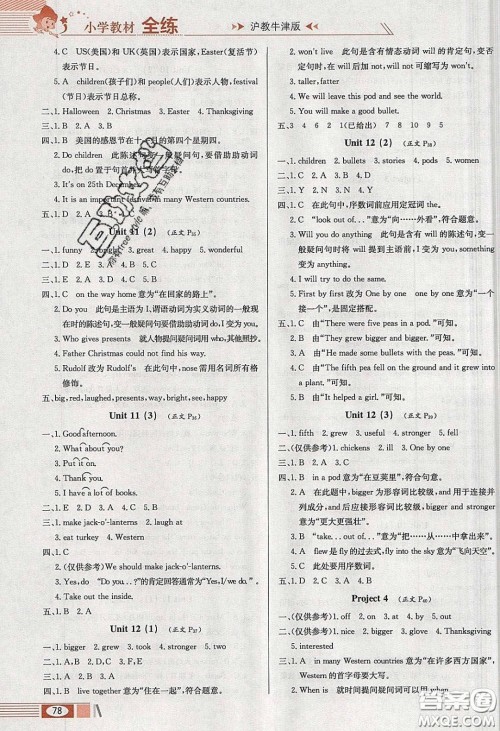 小学教材 全练
沪教牛津版
4. C US(美国)和 UK(英国)表示国家, Easter(复活节)
表示节日。
5. A children(孩子们)和 people(人们)表示人物, festival
(节日)表示节日总称。
二、1. Halloween 2. Christmas 3. Easter 4. Thanksgiving
三、1. B 2. A 3. B
四、1. B 美国的感恩节在十一月的第四个星期四。
2. Do children 此陈述句变一般疑问句,要借助助动词
do,把 do 置于句首
3. It's on 25th December.
4. It is an important festival in many Western countries.
五、1. D 2. A 3. B
Unit 11 (2) (正文 P₃₅)
一、1. funny 2. bright 3. gave 4. happy 5. wonderful
三、1. B 2. A 3. B 4. A 5. C
四、1. C on the way home 意为“在回家的路上”。
2. Do you 此句是主语为 I,谓语动词为实义动词的一般现
在时的陈述句,变一般疑问句要借助助动词 do。
3. Who gives presents 就人物提问疑问词用 who,其他照抄。
4. Father Christmas could not find his way.
5. Rudolf Rudolf's 表示所属,nose 需用名词所有格
修饰。
五、big, red, laughed, presents, way, bright, see, happy
Unit 11 (3) (正文 P₃₅)
一、1. Good afternoon.
2. What about you?
3. Put it on.
4. Thank you.
5. I like reading books.
二、1. B 2. A 3. B
三、1. make jack-o'-lanterns 2. laugh at
3. eat turkey 4. Western
四、1. C
2. (仅供参考) We should make jack-o'-lanterns.
3. Yes, do “Do you ...?”的肯定回答通常为“Yes, I/we do.”
4. Take out the inside.
五、1. B 2. A 3. B
Unit 12 (1) (正文 P₃₇)
一、1. bigger 2. grew 3. stay 4. green 5. together
三、1. A 2. C 3. C 4. B 5. A
四、1. B live together 意为“住在一起”,符合题意。
2. won't live 此句是含有情态动词 will 的肯定句,变否
定句时,在 will 后加 not,will not 可缩写为 won't。
3. taller, fatter
4. We will leave this pod and see the world.
5. You will make a good bullet.
五、3 4 6 2 1(已给出) 7 8 10 9 5
Unit 12 (2) (正文 P₃₈)
一、1. children 2. bullets 3. stories 5. pods
三、1. C 2. A 3. A 4. D 5. B
四、1. C 在此句中,序数词前应用定冠词 the。
2. C “look out of...”意为“向……外看”,符合题意。
3. Will you do anything 此句是含有 will 的陈述句,变一
般疑问句时将 will 提到主语前,I 变为 you, something
变为 anything。
4. We could not see anything.
5. First by first 改为 One by one one by one 意为“一个
接一个”,是固定搭配。
五、1. C 由“There were five peas in a pod.”可知。
2. A 由“He made some bullets with the peas.”可知。
3. C 由“The fifth pea fell on the ground and it grew
into a big plant.”可知。
4. B 由“It helped a girl.”可知。
Unit 12 (3) (正文 P₃₉)
一、1. fifth 2. grew 3. another 4. took 5. fell
二、(仅供参考) 1. chickens 2. ill 3. off
三、1. B 2. D 3. A 4. C
四、1. B in a pod 意为“在豆荚里”,符合题意。
2. A 在此题中,bigger 为形容词比较级,and 用于连接并
列成分,and 后应接形容词比较级,bigger and stronger
意为“更大更强壮”。
3. B “take... out of...”意为“把……从……中拿出来”。
4. A flew 是 fly 的过去式,fly into the sky 意为“飞向天空”。
5. C 此处要用序数词。
五、1. B 2. A 3. B
Project 4 (正文 P₄₀)
一、(仅供参考) 1. off 2. on 3. at 4. out of 5. out
二、(仅供参考) 1. nice 2. bigger 3. won 4. another
5. interested
三、1. B 2. D 3. A
四、1. A in many Western countries 意为“在许多西方国家”,
Western 的首字母要大写。
2. When is 就时间提问疑问词用 when,此句中的 is
78